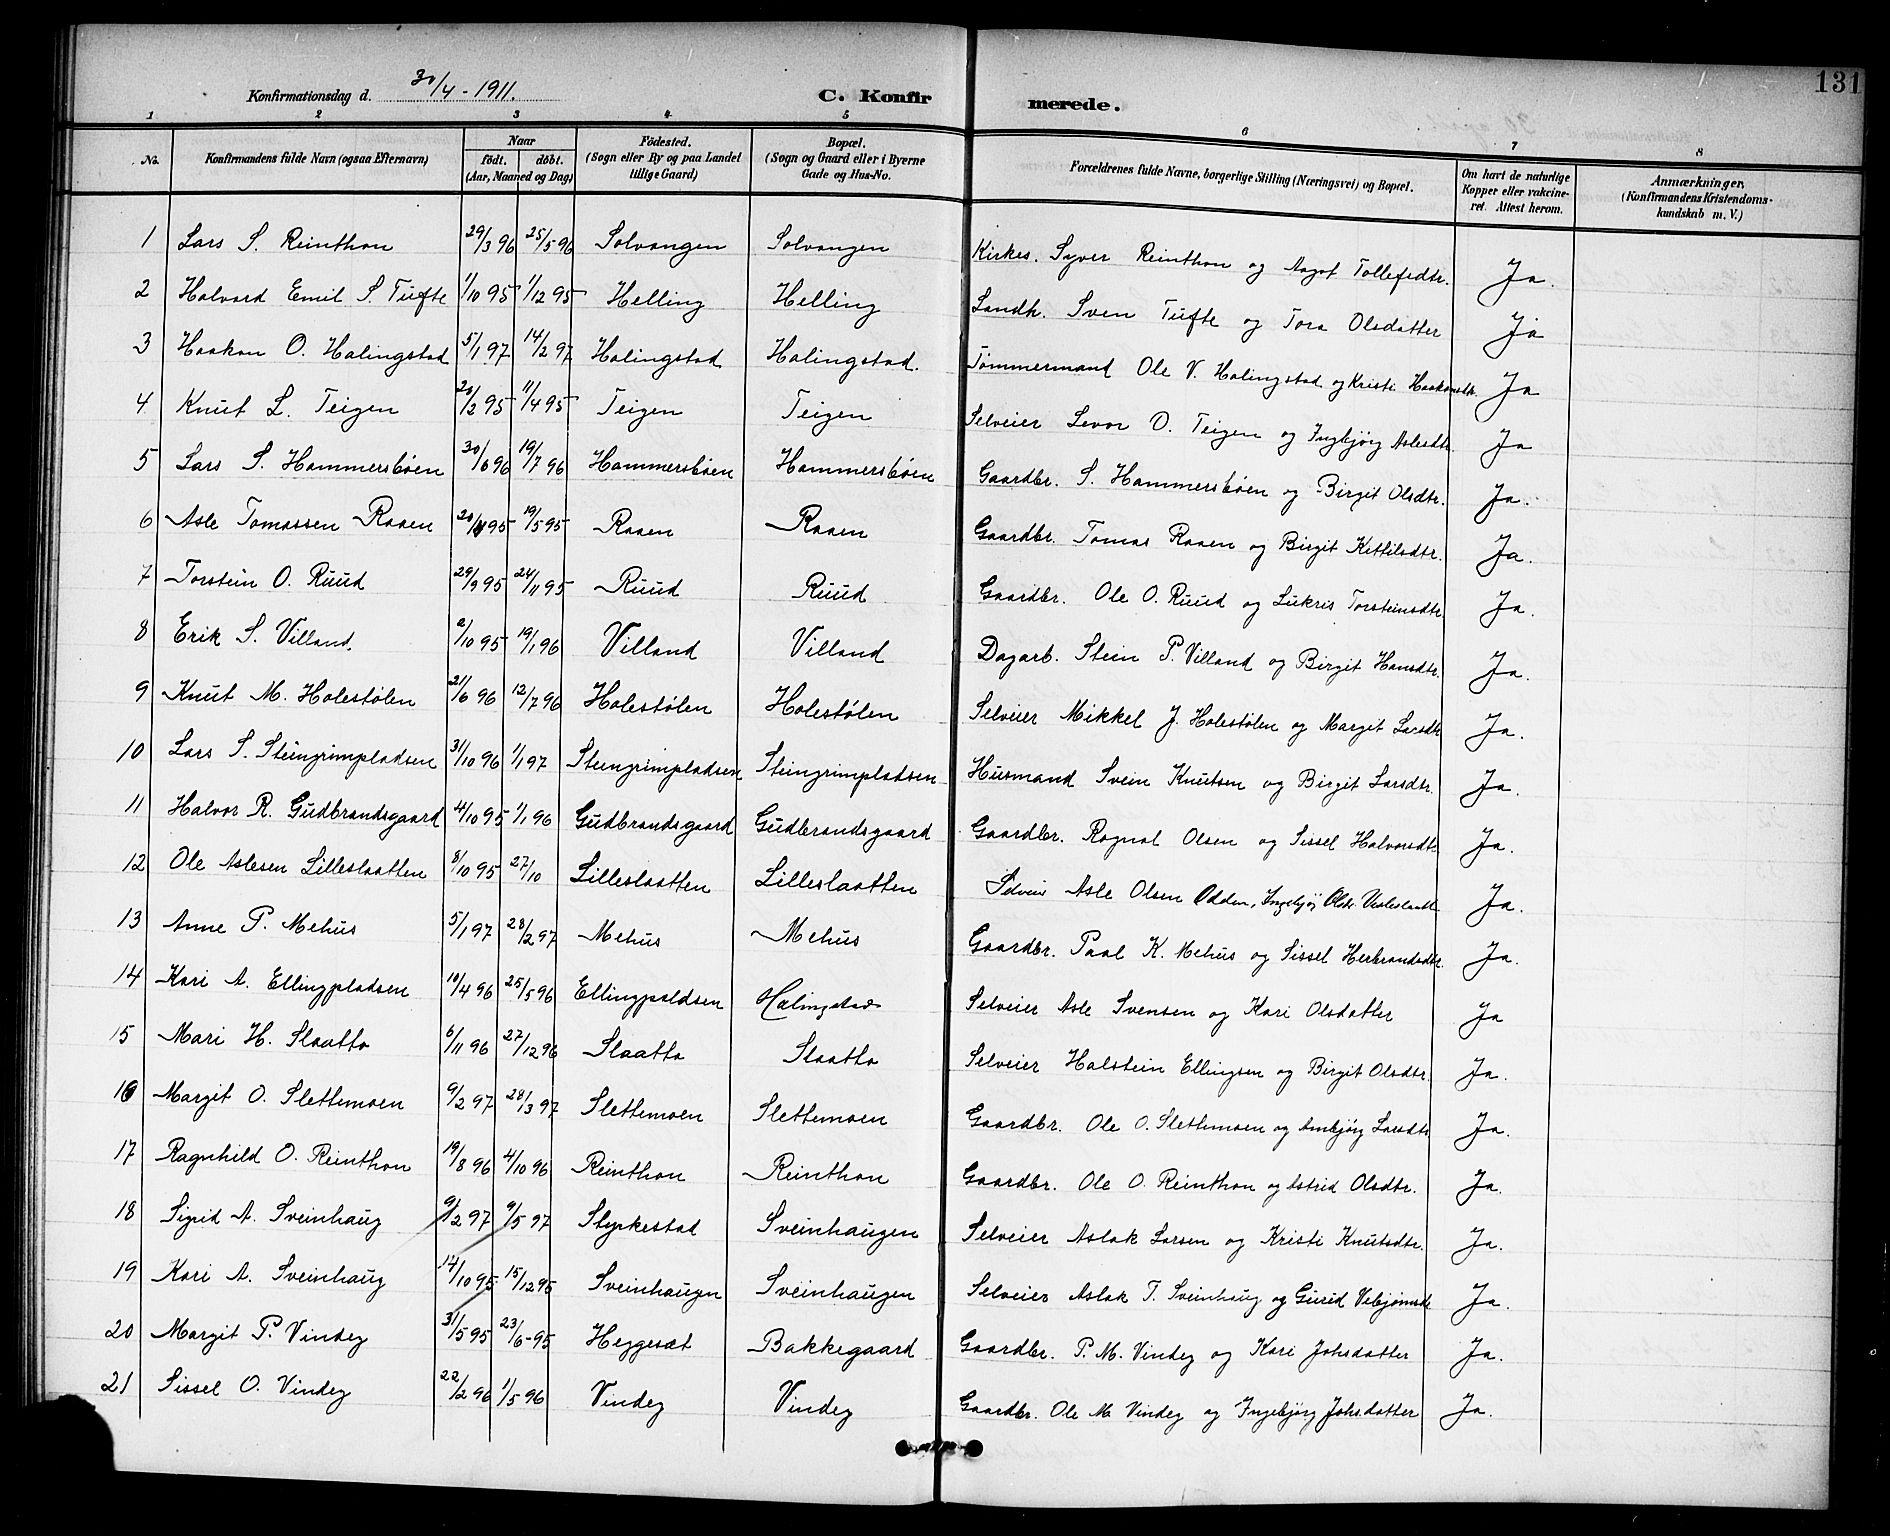 131
Konfirmationsdag d. 30/4 - 1911. C. Konfirmerede.
1 2 3 4 5 6 7 8
No. Konfirmandens fulde Navn (ogsaa Efternavn) Naar født. døbt. (Aar, Maaned og Dag) Fødested. (Sogn eller By og paa Landet tillige Gaard) Bopæl. (Sogn og Gaard eller i Byerne Gade og Hus-No. Forældrenes fulde Navne, borgerlige Stilling (Næringsvei) og Bopæl. Om havt de naturlige Kopper eller vakcineret. Attest herom. Anmærkninger. (Konfirmandens Kristendomskundskab m. V.)
1 Lars S. Reinthon 29/3 96 25/5 96 Solvangen Solvangen Kirkes. Syver Reinthon og Aagot Tollefsdtr. Ja.
2 Halvard Emil S. Tufte 1/10 95 1/12 95 Helling Helling Landh. Sven Tufte og Tora Olsdatter Ja
3 Haakon O. Halingstad 5/1 97 14/2 97 Halingstad Halingstad. Tømmermand Ole V. Halingstad og Kristi Haakonsdtr. Ja
4 Knut L. Teigen 20/2 95 11/4 95 Teigen Teigen Selveier Levor O. Teigen og Ingebjørg Aslesdtr. Ja
5 Lars S. Hammersbøen 30/6 96 19/7 96 Hammersbøen Hammersbøen Gaardbr. S. Hammersbøen og Birgit Olsdtr. Ja.
6 Asle Tomassen Raaen 20/4 95 19/5 95 Raaen Raaen Gaardbr. Tomas Raaen og Birgit Kittilsdtr. Ja.
7 Torstein O. Ruud 29/9 95 24/11 95 Ruud Ruud Gaardbr. Ole O. Ruud og Lukris Torsteinsdtr. Ja.
8 Erik S. Villand. 2/10 95 19/1 96 Villand Villand Dagarb. Stein P. Villand og Birgit Hansdtr. Ja.
9 Knut M. Holestølen 21/6 96 12/7 96 Holestølen Holestølen Selveier Mikkel J. Holestølen og Margit Larsdtr Ja.
10 Lars S. Steingrimpladsen 31/10 96 1/1 97 Steingrimpladsen Steingrimpladsen Husmand Svein Knutsen og Birgit Larsdtr. Ja.
11 Halvor R. Gudbrandsgaard 4/10 95 1/1 96 Gudbrandsgaard Gudbrandsgaard Gaardbr. Ragnal Olsen og Sissel Halvorsdtr. Ja.
12 Ole Aslesen Lilleslaatten 8/10 95 27/10 Lilleslaatten Lilleslaatten Selveier Asle Olsen Odden, Ingebjø Olsdr. Ja.
13 Anne P. Mehus 5/1 97 28/2 97 Mehus Mehus Gaardbr. Paal K. Mehus og Sissel Herbrandsdtr. Ja.
14 Kari A. Ellingpladsen 10/4 96 25/5 96 Ellingpaldsen Halingstad Selveier Asle Svensen og Kari Olsdatter Ja
15 Mari H. Slaatto 6/11 96 27/12 96 Slaatto Slaatto Selveier Halstein Ellingsen og Birgit Olsdtr. Ja.
16 Margit O. Slettemoen 9/2 97 28/3 97 Slettemoen Slettemoen Gaardbr. Ole O. Slettemoen og Ambjørg Larsdtr. Ja.
17 Ragnhild O. Reinthon 19/8 96 4/10 96 Reinthon Reinthon Gaardbr. Ole O. Reinthon og Astrid Olsdtr. Ja.
18 Sigrid A. Sveinhaug 9/2 97 9/5 97 Styrkestad Sveinhaugen Selveier Aslak Larsen og Kristi Knutsdtr. Ja.
19 Kari A. Sveinhaug 14/10 95 15/12 95 Sveinhaugn Sveinhaugen Selveier Aslak T. Sveinhaug og Gurid Vebjørnsd. Ja.
20 Margit P. Vindeg 31/5 95 23/6-95 Heggesæt Bakkegaard Gaardbr. P. M. Vindeg og Kari Johsdatter Ja.
21 Sissel O. Vindeg 22/2 96 1/5 96 Vindeg Vindeg Gaardbr. Ole M Vindeg og Ingebjørg Johsdatter Ja.